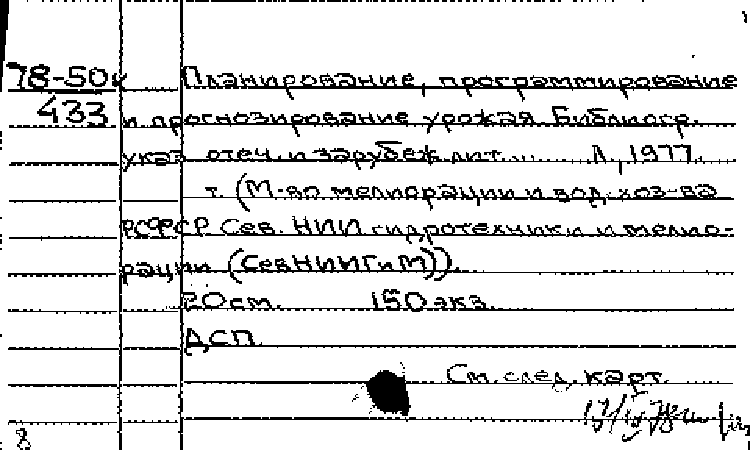 78-50к Планирование, программирование
433 и прогнозирование урожая. Библиогр.
указ. отеч. и зарубеж. лит. ... Л., 1977.
т. (М-во мелиорации и вод. хоз-ва
РСФСР Сев. НИИ гидротехники и мелио-
рации (СевНИИГиМ)).
20 см. 150 экз.
ДСП
См. след. карт.
8